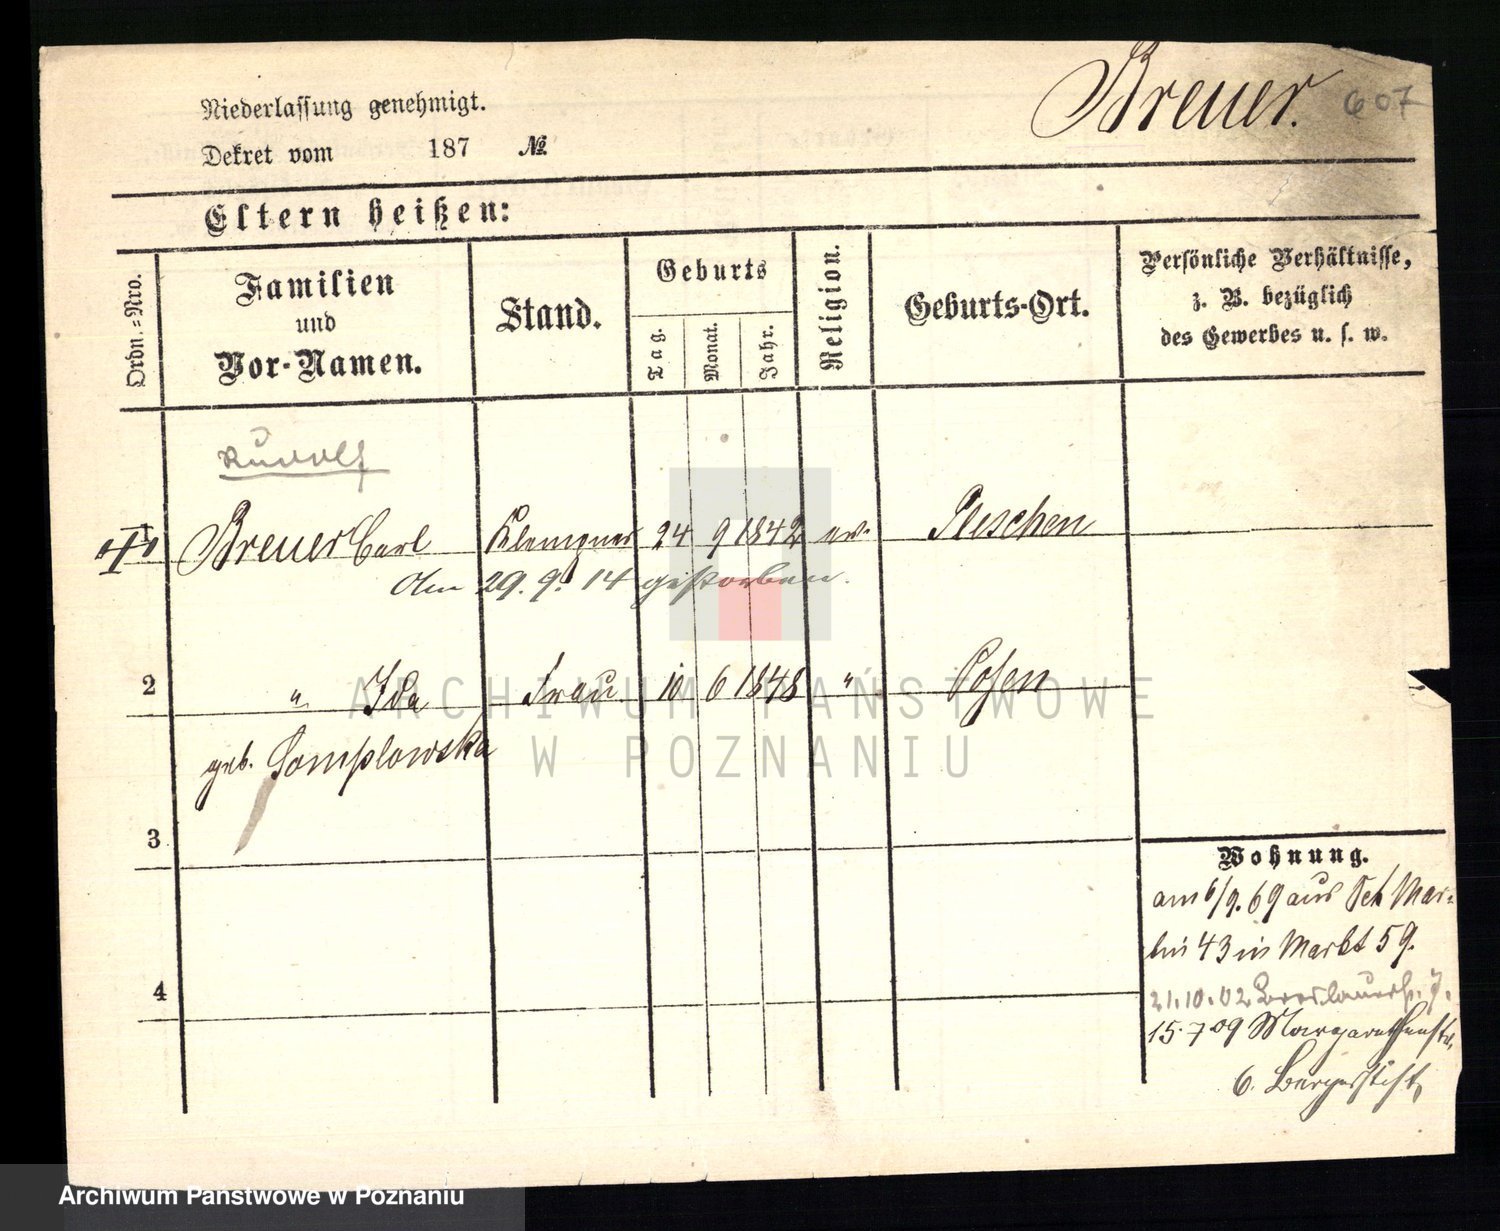 Breuer. 607
Niederlassung genehmigt.
Dekret vom 187 №
Eltern heißen:
Ordn.=Nro.
Familien
und
Vor-Namen.
Stand.
Geburts
Tag.
Monat.
Jahr.
Religion.
Geburts-Ort.
Persönliche Verhältnisse,
z. B. bezüglich
des Gewerbes u. s. w.
Rudolf
Breuer Carl Klempner 24 9 1842 ev. Pleschen
Am 29. 9. 14 gestorben.
2 " Ida Frau 10 6 1848 " Posen
geb. Somplowska
3
4
Wohnung.
am 6/9. 69 aus Sct Mar-
tin 43 in Markt 59.
21.10.02 Breslauerstr. 7.
15.7.09 Margarethenstr.
6. Bergerstift
ARCHIWUM PAŃSTWOWE
W POZNANIU
Archiwum Państwowe w Poznaniu